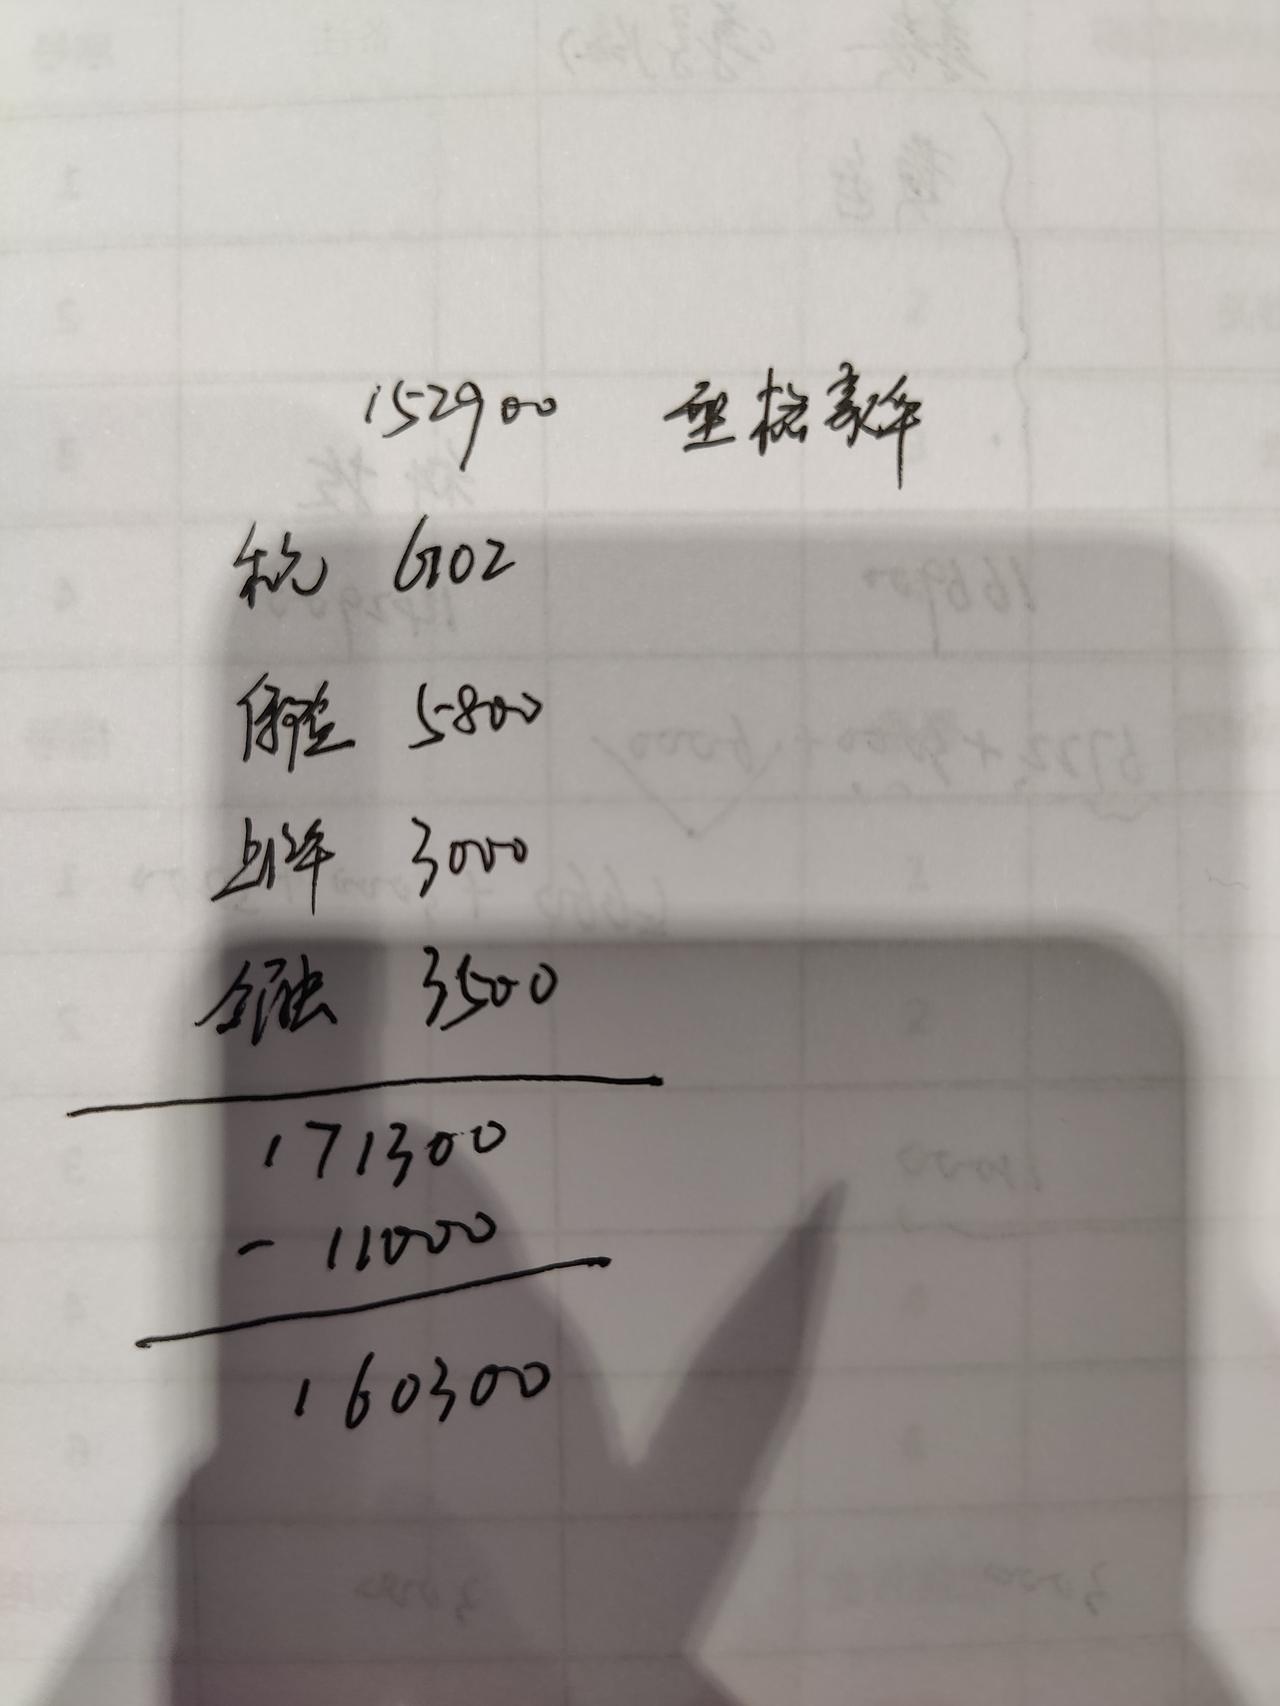 152900 型格豪华
税 6102
保险 5800
上牌 3000
金融 3500
171300
- 11000
160300